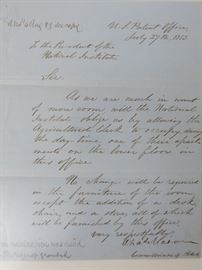 U. S. Patent Office
July 27th 1853
To the President of the
National Institute
Sir,
As we are much in want
of more room will the National
Institute oblige us by allowing the
Agricultural Clerk to occupy during
the day-time, one of their apart-
ments on the lower floor in
this office.
No change will be required
in the furniture of the room
except the addition of a desk,
chair, and a stove, all of which
will be furnished by this office.
Very respectfully
Commissioner of